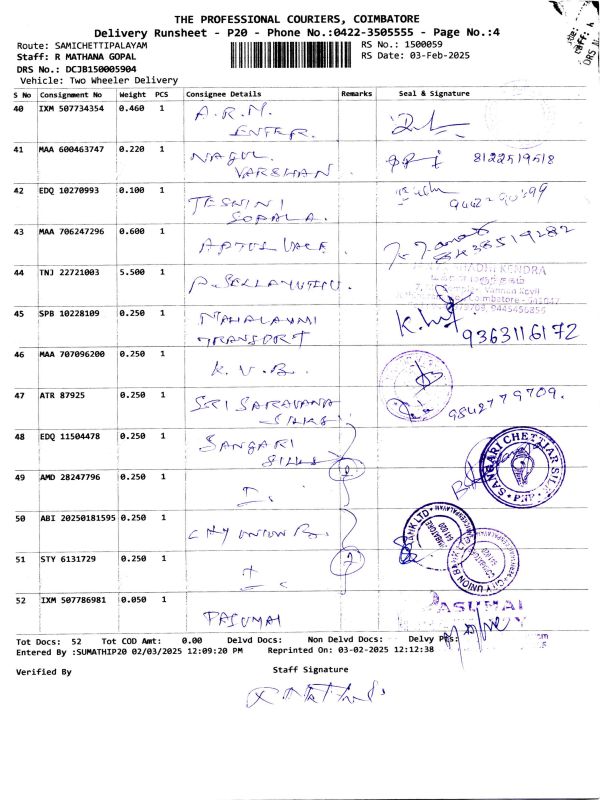 THE PROFESSIONAL COURIERS, COIMBATORE
Delivery Runsheet - P20 - Phone No.:0422-3505555 - Page No.:4
Route: SAMICHETTIPALAYAM
RS No.: 1500059
Staff: R MATHANA GOPAL
RS Date: 03-Feb-2025
DRS No.: DCJB150005904
Vehicle: Two Wheeler Delivery
S No Consignment No Weight PCS Consignee Details Remarks Seal & Signature
40 IXM 507734354 0.460 1 A.R.M.
ENTER.
41 MAA 600463747 0.220 1 NAGUL
VARSHAN 8122519518
42 EDQ 10270993 0.100 1 JESNINI
GOPALA. 9442290399
43 MAA 706247296 0.600 1 APTUS VALE 8438519282
44 TNJ 22721003 5.500 1 P. SELLAMUTHU.
KENDRA
45 SPB 10228109 0.250 1 MAHALAXMI
TRANSPORT 9363116172
46 MAA 707096200 0.250 1 K.V.B.
47 ATR 87925 0.250 1 SRI SARAVANA
SILKS 9842779709.
48 EDQ 11504478 0.250 1 SANGARI
SILKS
SANGARI CHETTIAR SIL
PNP
49 AMD 28247796 0.250 1
50 ABI 20250181595 0.250 1 CITY UNION B.
BANK LTD
51 STY 6131729 0.250 1
CITY UNION BANK LTD
52 IXM 507786981 0.050 1 PASUMAI
PASUMAI
Tot Docs: 52 Tot COD Amt: 0.00 Delvd Docs: Non Delvd Docs: Delvy Pts:
Entered By :SUMATHIP20 02/03/2025 12:09:20 PM Reprinted On: 03-02-2025 12:12:38
Verified By
Staff Signature